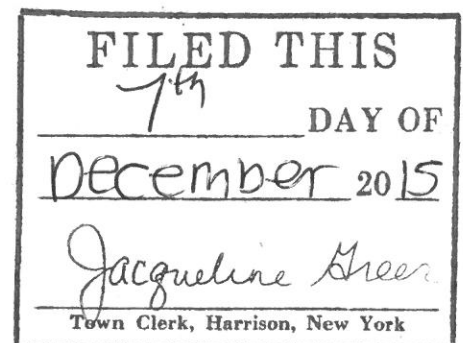 FILED THIS
7th DAY OF
December 2015
Jacqueline Greer
Town Clerk, Harrison, New York